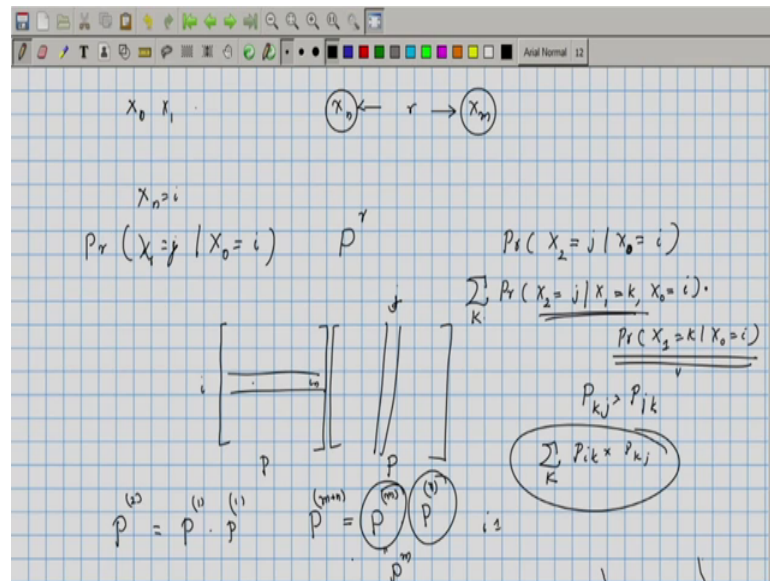 T Arial Normal 12
X₀ X₁ . Xₙ ← r → Xₘ
Xₙ=i
Pr ( X₁=j | X₀=i ) P^r Pr( X₂=j | X₀=i )
∑_K Pr( X₂=j | X₁=k, X₀=i ).
Pr( X₁=k | X₀=i )
j
i
P_kj × P_jk
∑_K P_ik × P_kj
P P
P^(2) = P^(1) . P^(1) P^(m+n) = P^(m) P^(n) i1
P^m